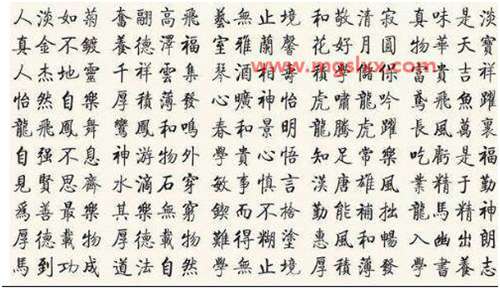 人淡如菊 奮翮高飛 藝無止境 和敬清寂 真味是淡
真金不鍍 養德澤福 室雅蘭馨 花好月圓 物華天寶
www.mgshxx.com
人杰地靈 千祥雲集 琴酒相 學儲 富貴吉祥
怡然自樂 厚積薄發 心曠神怡 虎嘯龍吟 鳶飛魚躍
龍飛鳳舞 鸞鳳和鳴 春和景明 龍騰虎躍 長風萬裏
自强不息 神游物外 學貴心悟 知足常樂 吃虧是福
見賢思齊 水滴石穿 敏事慎言 漢唐雄風 業精于勤
爲善最樂 其樂無窮 鍥而不捨 勤能補拙 龍馬精神
厚德載物 厚德載物 難得糊塗 惠風和暢 入幽出朗
馬到功成 道法自然 學無止境 厚積薄發 學書養志